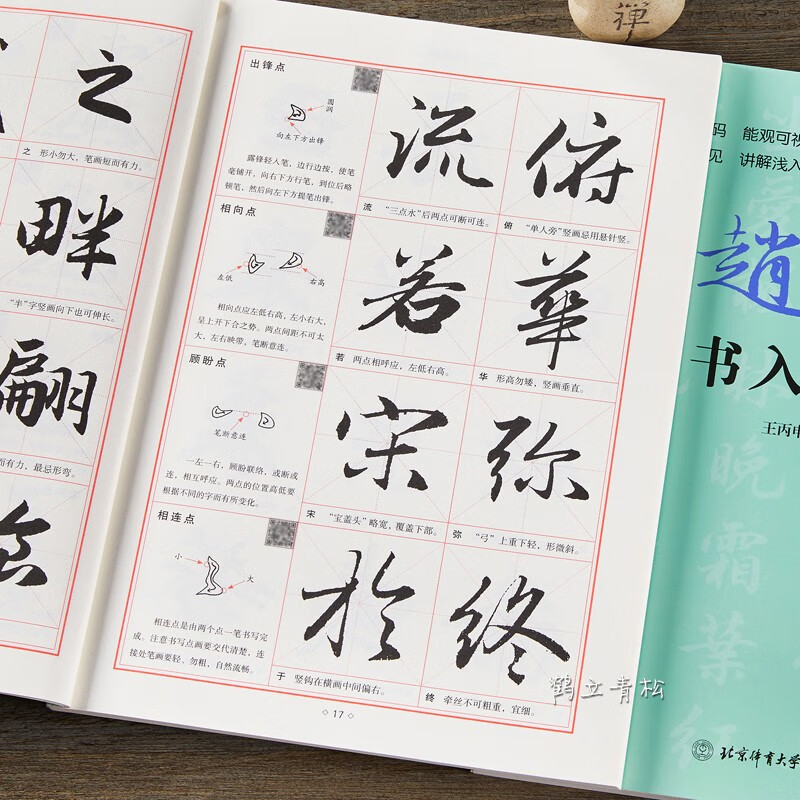 之
之 形小勿大，笔画短而有力。
畔
"半"字竖画向下也可伸长。
翩
而有力，最忌形弯。
念
出锋点
圆润
向左下方出锋
露锋轻入笔，边行边按，使笔
毫铺开，向右下方行笔，到位后略
顿笔，然后向左下方提笔出锋。
流
流 "三点水"后两点可断可连。
俯
俯 "单人旁"竖画忌用悬针竖。
相向点
左低
右高
相向点应左低右高，左小右大，
呈上开下合之势。两点间距不可太
大，左右映带，笔断意连。
若
若 两点相呼应，左低右高。
華
华 形高勿矮，竖画垂直。
顾盼点
笔断意连
一左一右，顾盼联络，或断或
连，相互呼应。两点的位置高低要
根据不同的字而有所变化。
宋
宋 "宝盖头"略宽，覆盖下部。
弥
弥 "弓"上重下轻，形微斜。
相连点
小
大
相连点是由两个点一笔书写完
成。注意书写点画要交代清楚，连
接处笔画要轻、勿粗，自然流畅。
於
于 竖钩在横画中间偏右。
终
终 牵丝不可粗重，宜细。
17
鹤立青松
禅
码 能观可视
见 讲解浅入
趙
书入
王丙申
晚
霜
葉
红
北京体育大学